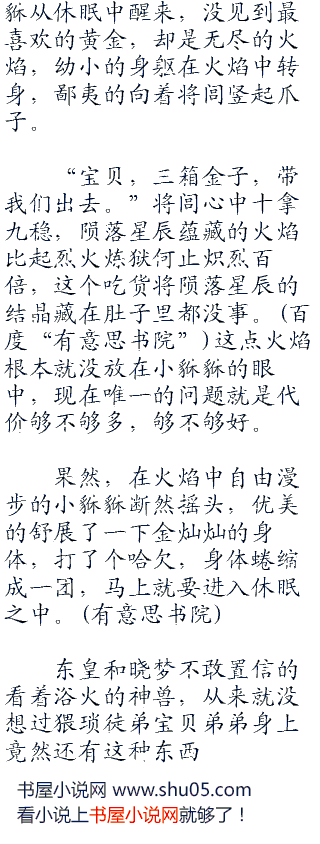 貅从休眠中醒来，没见到最
喜欢的黄金，却是无尽的火
焰，幼小的身躯在火焰中转
身，鄙夷的向着将闾竖起爪
子。
“宝贝，三箱金子，带
我们出去。”将闾心中十拿
九稳，陨落星辰蕴藏的火焰
比起烈火炼狱何止炽烈百
倍，这个吃货将陨落星辰的
结晶藏在肚子里都没事。(百
度“有意思书院”)这点火焰
根本就没放在小貅貅的眼
中，现在唯一的问题就是代
价够不够多，够不够好。
果然，在火焰中自由漫
步的小貅貅断然摇头，优美
的舒展了一下金灿灿的身
体，打了个哈欠，身体蜷缩
成一团，马上就要进入休眠
之中。(有意思书院)
东皇和晓梦不敢置信的
看着浴火的神兽，从来就没
想过猥琐徒弟宝贝弟弟身上
竟然还有这种东西
书屋小说网 www.shu05.com
看小说上书屋小说网就够了！